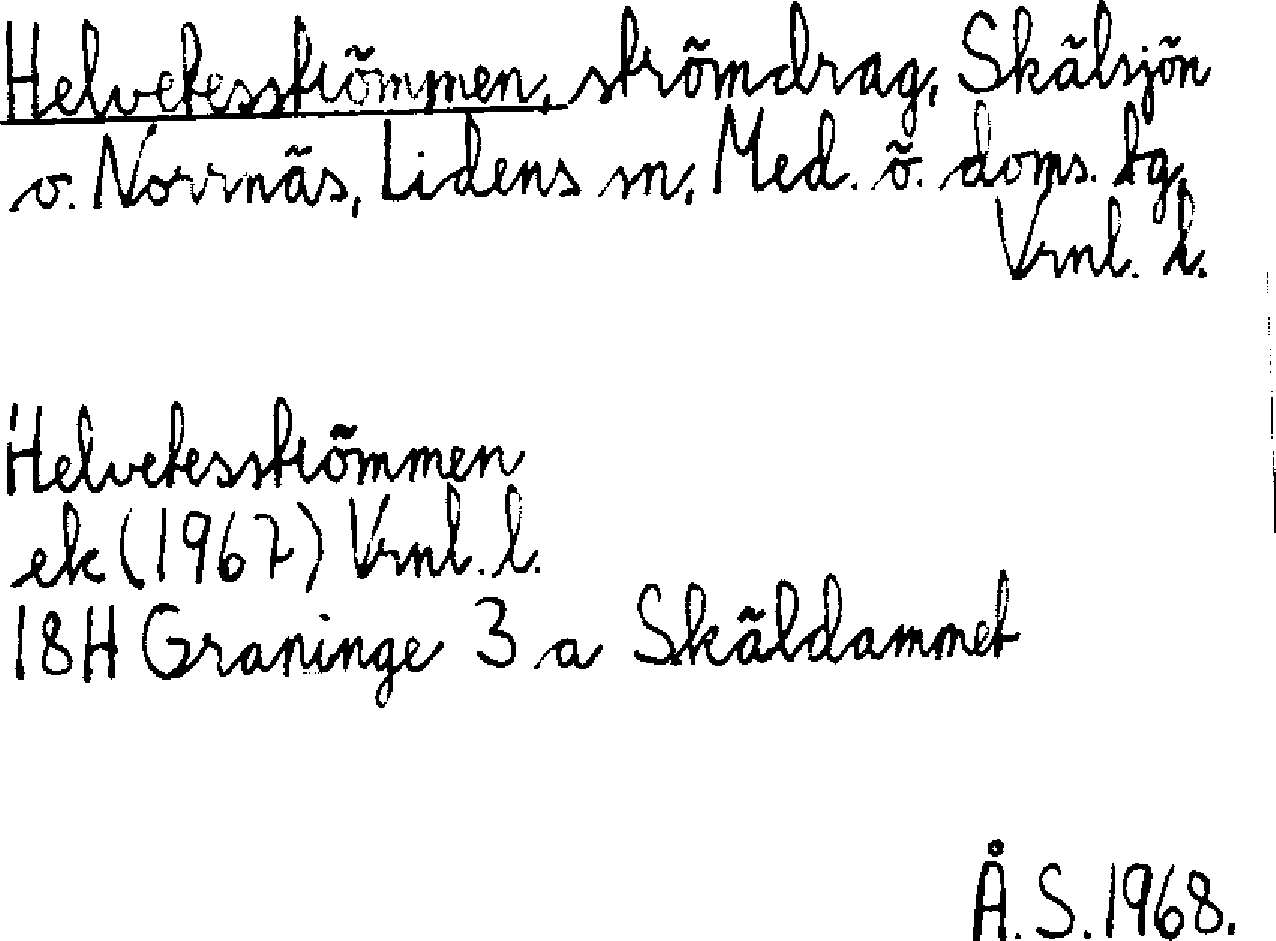 Helvetesströmmen, strömdrag, Skälsjön
o. Norrnäs, Lidens sn, Med. ö. doms. tg,
Vrnl. l.
Helvetesströmmen
ek (1967) Vrnl. l.
18H Graninge 3 a Skäldammet
Å. S. 1968.